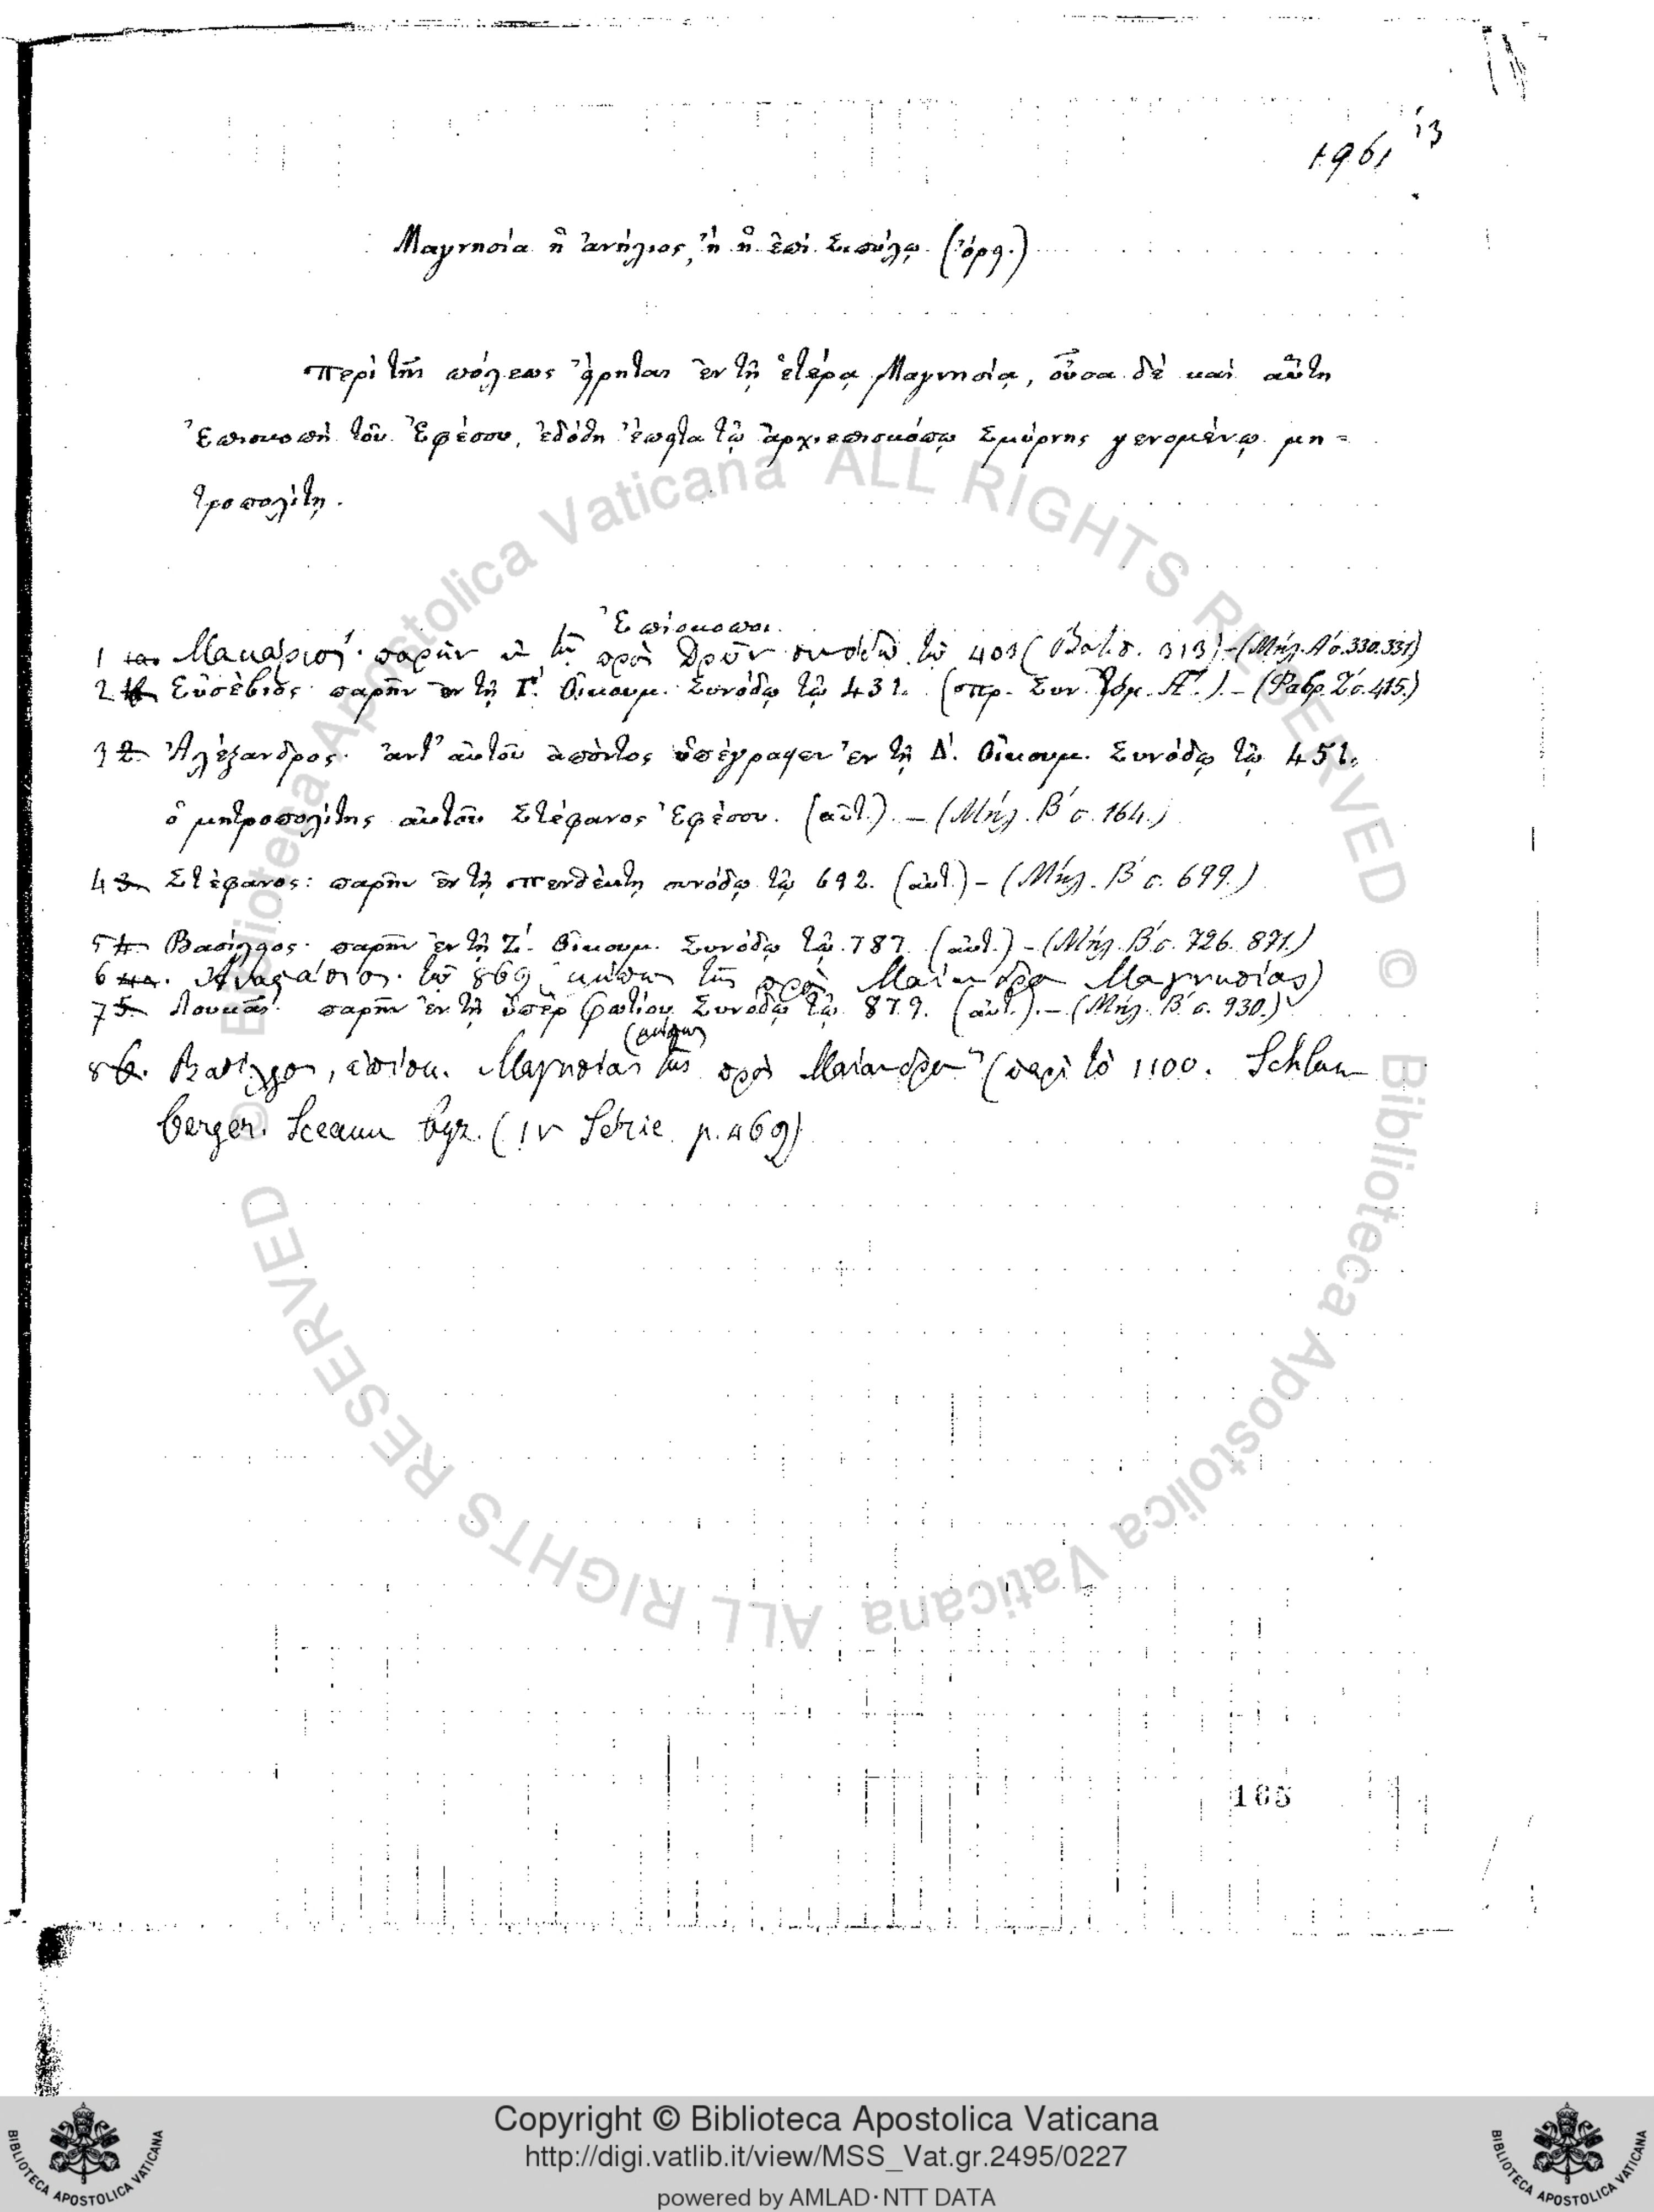 13
1961
Μαγνησία ἡ ἀνήλιος, ἢ ἡ ἐπὶ Σιπύλῳ. (ὀρθ.)
Περὶ τῆς πόλεως εἴρηται ἐν τῇ ἑτέρᾳ Μαγνησίᾳ, οὖσα δὲ καὶ αὕτη
Ἐπισκοπὴ τοῦ Ἐφέσου, ἐδόθη ἔπειτα τῷ ἀρχιεπισκόπῳ Σμύρνης γενομένῳ μη=
τροπολίτῃ.
Ἐπίσκοποι.
1 1α. Μακάριος· παρὼν ἐν τῇ πρὸς Δρῦν συνόδῳ τῷ 403 ( 313) - (Μήλ. Α' σ. 330. 331)
2 Εὐσέβιος· παρῆν ἐν τῇ Γ'. Οἰκουμ. Συνόδῳ τῷ 431. (πρ. Συν. Τόμ. Α'.). - (Φαβρ. Ζ' σ. 415.)
3 2. Ἀλέξανδρος· ἀντ' αὐτοῦ ἀπόντος ὑπέγραψεν ἐν τῇ Δ'. Οἰκουμ. Συνόδῳ τῷ 451.
ὁ μητροπολίτης αὐτοῦ Στέφανος Ἐφέσου. (αὐτ.). - (Μήλ. Β' σ. 164.)
4 3. Στέφανος: παρῆν ἐν τῇ πενθέκτῃ συνόδῳ τῷ 692. (αὐτ.) - (Μήλ. Β' σ. 699.)
5 4. Βασίλειος· παρῆν ἐν τῇ Ζ'. Οἰκουμ. Συνόδῳ τῷ 787. (αὐτ.) - (Μήλ. Β' σ. 726. 871.)
6 4α. Ἀθανάσιος· τῷ 869 τῆς πρὸς Μαίανδρον Μαγνησίας)
7 5. Λουκᾶς· παρῆν ἐν τῇ ὑπὲρ Φωτίου Συνόδῳ τῷ 879. (αὐτ.). - (Μήλ. Β' σ. 930.)
8 6. Βασίλειος, ἐπίσκ. Μαγνησίας τῆς πρὸς Μαίανδρον (περὶ τὸ 1100. Schlum
berger. Sceaux byz. (IV Série p. 469)
165
© Biblioteca Apostolica Vaticana ALL RIGHTS RESERVED
© Biblioteca Apostolica Vaticana ALL RIGHTS RESERVED
Copyright © Biblioteca Apostolica Vaticana
http://digi.vatlib.it/view/MSS_Vat.gr.2495/0227
powered by AMLAD·NTT DATA
BIBLIOTECA APOSTOLICA VATICANA
BIBLIOTECA APOSTOLICA VATICANA